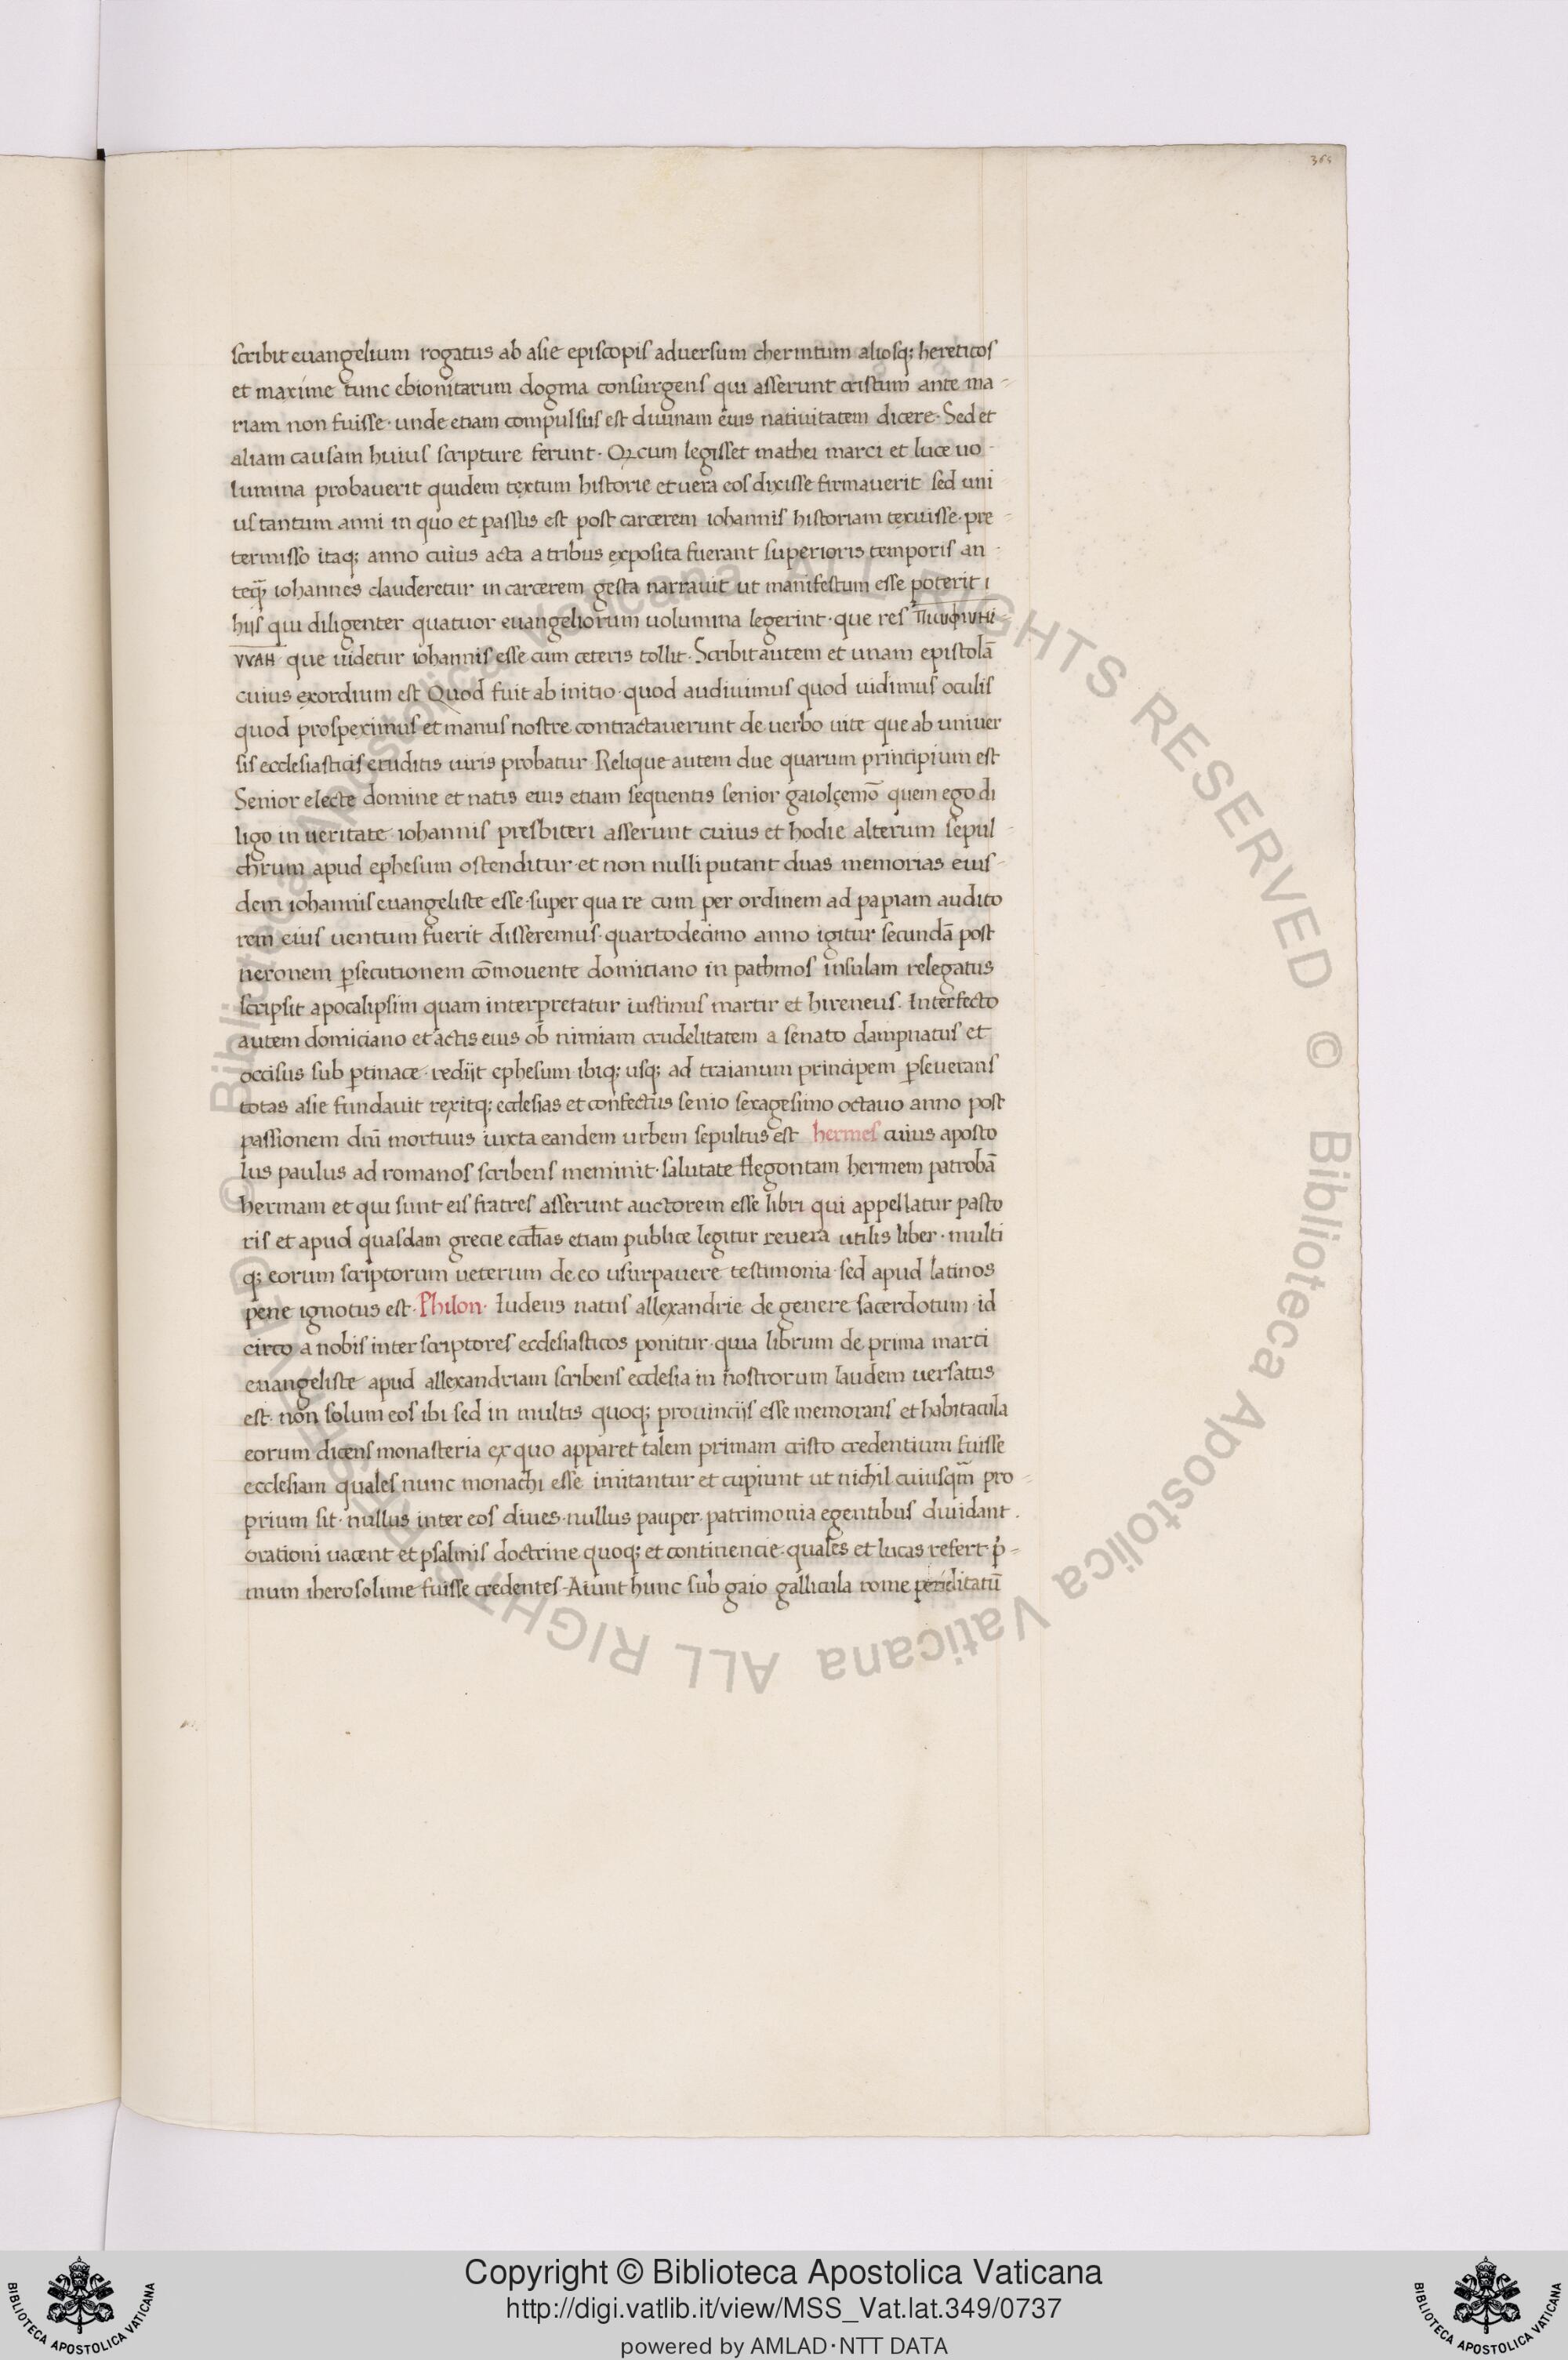 365
scribit euangelium rogatus ab asie episcopis aduersum cherintum aliosq; hereticos
et maxime tunc ebionitarum dogma consurgens qui asserunt cristum ante ma-
riam non fuisse· unde etiam compulsus est diuinam eius natiuitatem dicere· Sed et
aliam causam huius scripture ferunt· cum legisset mathei marci et luce uo-
lumina probauerit quidem textum historie et uera eos dixisse firmauerit sed uni
us tantum anni in quo et passus est post carcerem iohannis historiam texuisse· pre-
termisso itaq; anno cuius acta a tribus exposita fuerant superioris temporis an-
teq̃ iohannes clauderetur in carcerem gesta narrauit ut manifestum esse poterit i
hijs qui diligenter quatuor euangeliorum uolumina legerint· que res
que uidetur iohannis esse cum ceteris tollit· Scribit autem et unam epistolā
cuius exordium est Quod fuit ab initio· quod audiuimus quod uidimus oculis
quod prospeximus et manus nostre contractauerunt de uerbo uite que ab uniuer
sis ecclesiasticis eruditis uiris probatur· Relique autem due quarum principium est
Senior electe domine et natis eius etiam sequentis senior quem ego di
ligo in ueritate· iohannis presbiteri asserunt cuius et hodie alterum sepul-
chrum apud ephesum ostenditur· et non nulli putant duas memorias eius-
dem iohannis euangeliste esse· super qua re cum per ordinem ad papiam audito
rem eius uentum fuerit disseremus· quartodecimo anno igitur secundā post
neronem p̱secutionem cōmouente domitiano in pathmos insulam relegatus
scripsit apocalipsim quam interpretatur iustinus martir et hireneus. Interfecto
autem domiciano et actis eius ob nimiam crudelitatem a senato dampnatus et
occisus sub p̱tinace· redijt ephesum ibiq; usq; ad traianum principem p̱seuerans
totas asie fundauit rexitq; ecclesias et confectus senio sexagesimo octauo anno post
passionem dnī mortuus iuxta eandem urbem sepultus est hermes cuius aposto
lus paulus ad romanos scribens meminit· salutate flegontam hermem patrobā
hermam et qui sunt eis fratres asserunt auctorem esse libri qui appellatur pasto
ris et apud quasdam grecie eccl̄ias etiam publice legitur reuera utilis liber· multi
q; eorum scriptorum ueterum de eo usurpauere testimonia· sed apud latinos
pene ignotus est· Philon· Iudeus natus allexandrie de genere sacerdotum· id
circo a nobis inter scriptores ecclesiasticos ponitur· quia librum de prima marci
euangeliste apud allexandriam scribens ecclesia in nostrorum laudem uersatus
est· non solum eos ibi sed in multis quoq; prouincijs esse memorans et habitacula
eorum dicens monasteria ex quo apparet talem primam cristo credentium fuisse
ecclesiam quales nunc monachi esse imitantur et cupiunt ut nichil cuiusqm̄ pro-
prium sit· nullus inter eos diues· nullus pauper· patrimonia egentibus diuidant·
orationi uacent et psalmis doctrine quoq; et continencie· quales et lucas refert p̍-
mum iherosolime fuisse credentes· Aiunt hunc sub gaio gallicula rome periclitatū
© Biblioteca Apostolica Vaticana ALL RIGHTS RESERVED © Biblioteca Apostolica Vaticana ALL RIGHTS RESERVED
Copyright © Biblioteca Apostolica Vaticana
http://digi.vatlib.it/view/MSS_Vat.lat.349/0737
powered by AMLAD·NTT DATA
BIBLIOTECA APOSTOLICA VATICANA
BIBLIOTECA APOSTOLICA VATICANA